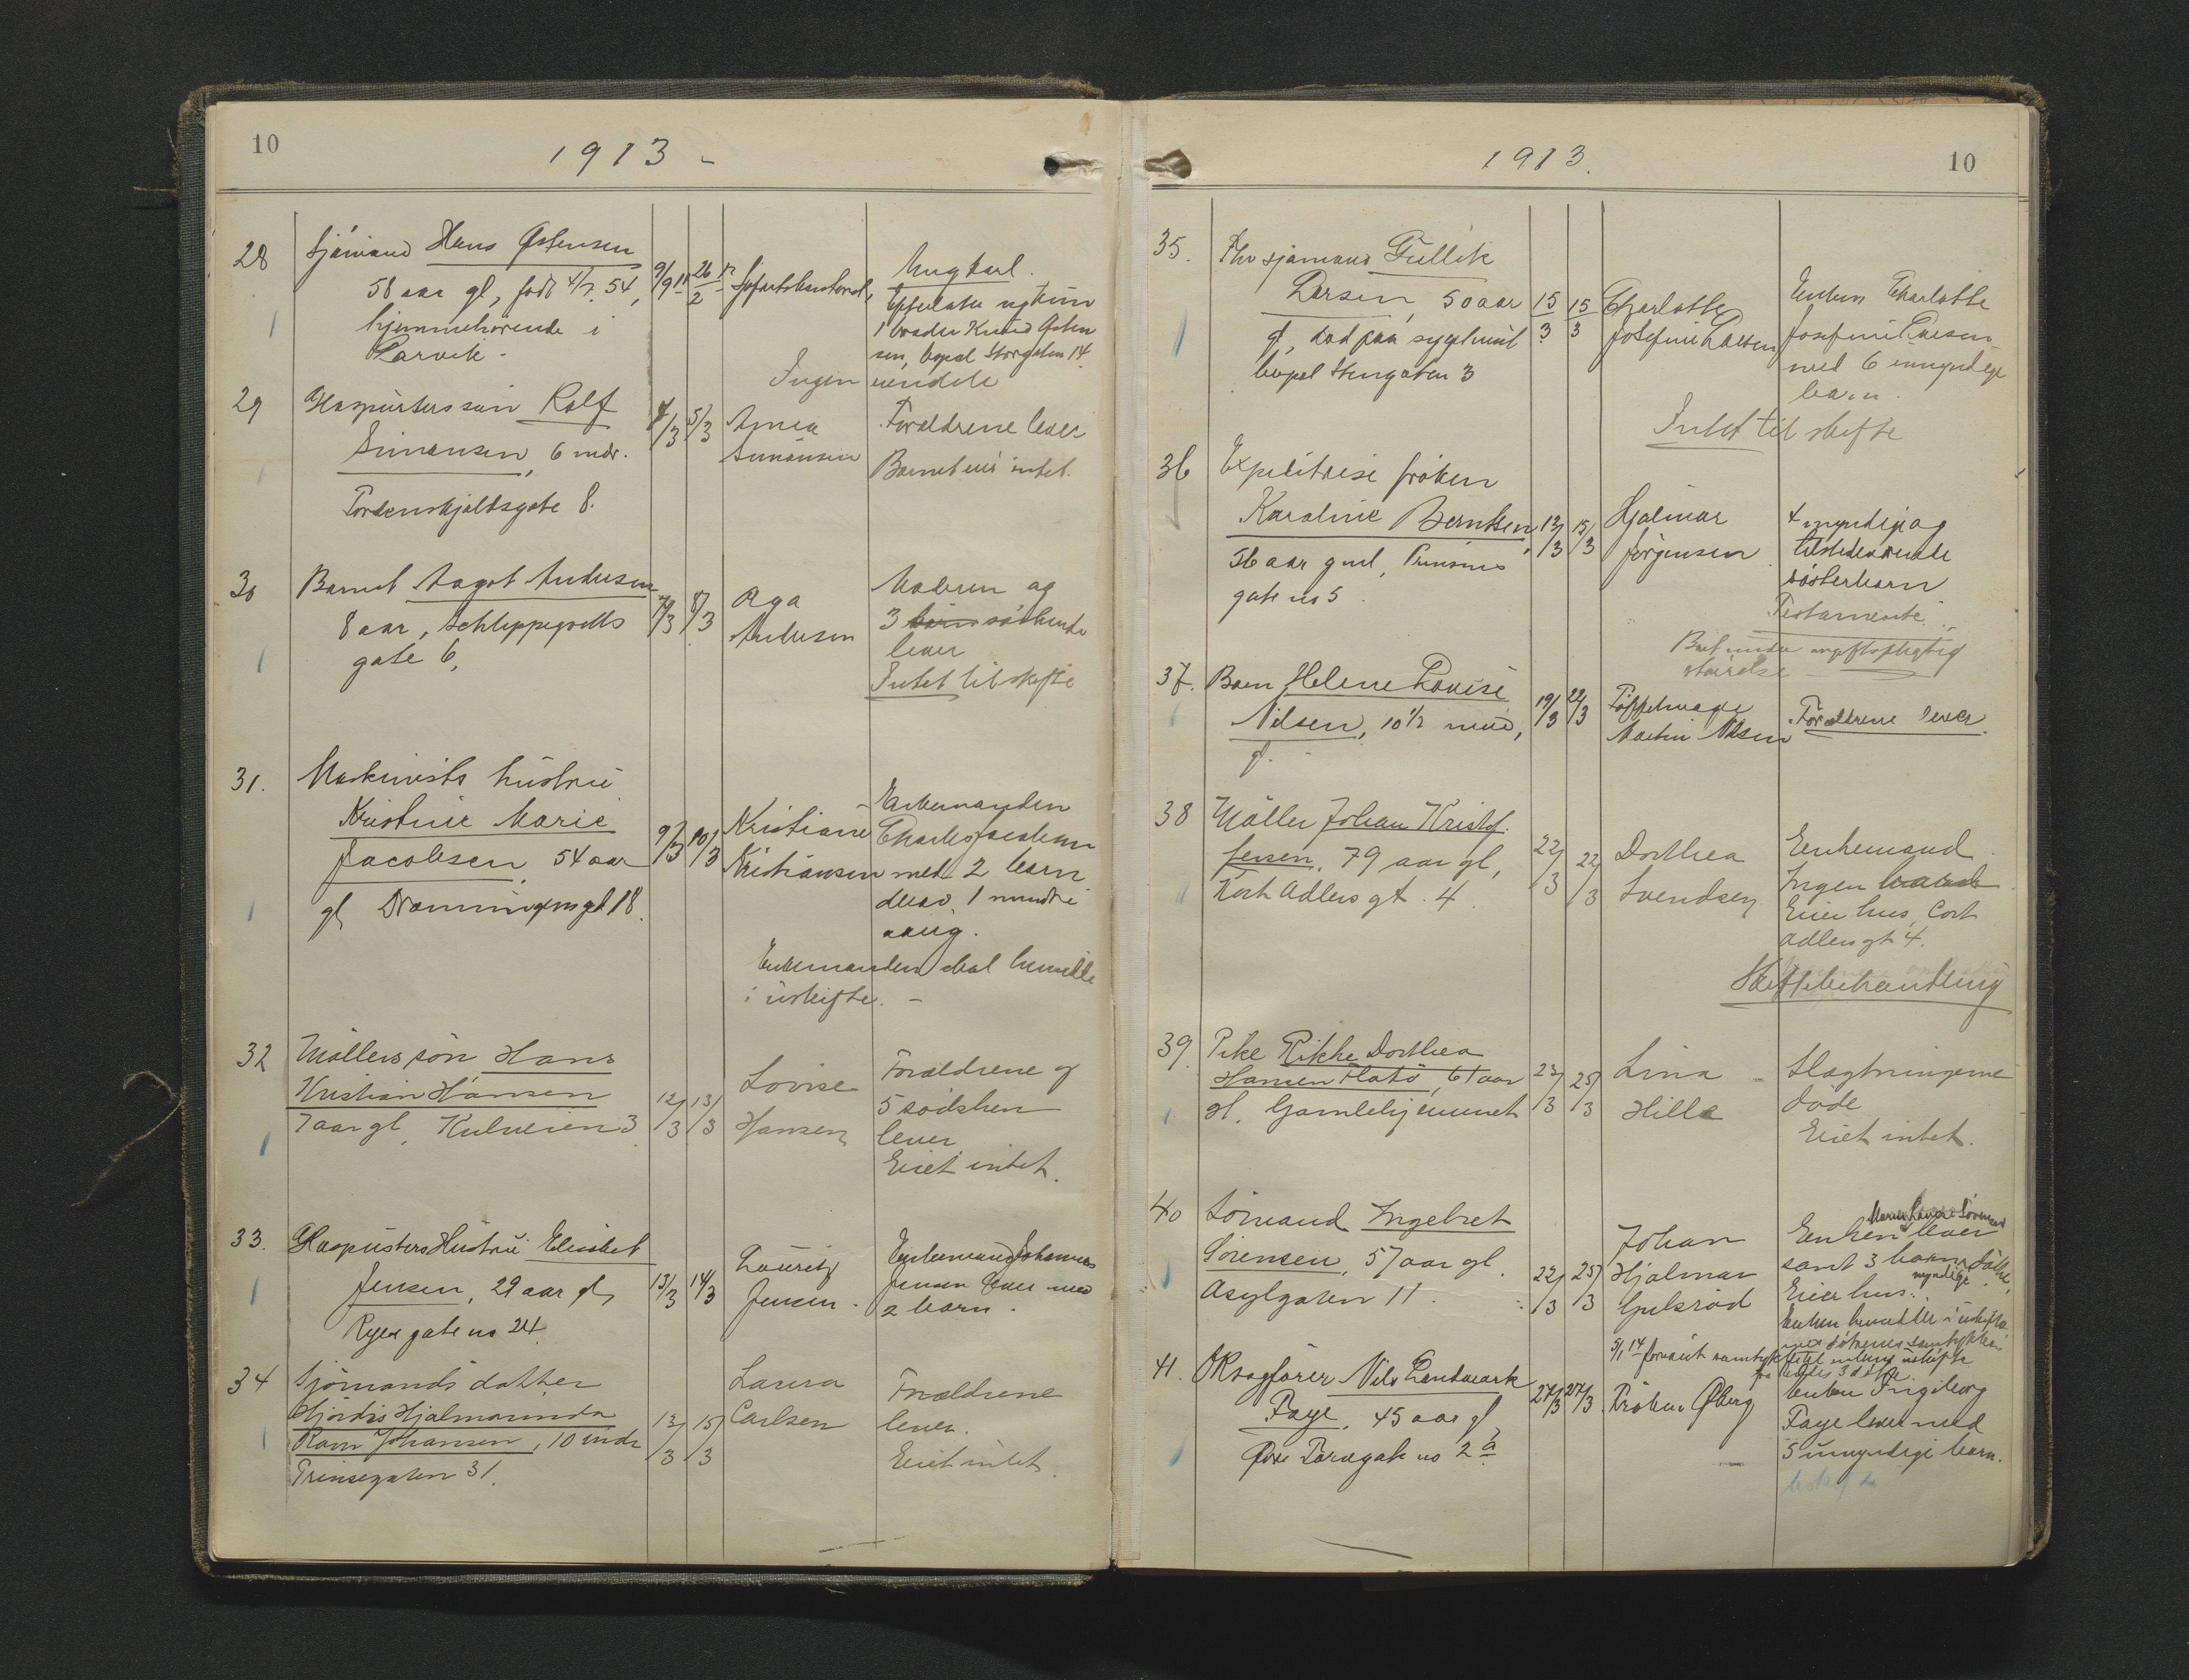 10
1913 -
28
Sjømand Hans Østensen
58 aar gl, født 4/7. 54,
hjemmehørende i
Larvik -
9/9 11
26/2 12
Sjøfartskontoret,
Ungkarl.
Efterlater sig kun
1 broder Knud Østen
sen, bopæl Storgaten 14
Ingen eiendele
29
Glaspusters søn Rolf
Simensen, 6 mdr.
Tordenskjoldsgate 8.
4/3
5/3
Anna
Simonsen
Forældrene lever
Barnet eier intet.
30
Barnet Aagot Andersen
8 aar, Schleppegrells
gate 6,
7/3
8/3
Aga
Andersen
Moderen og
3 søskende
lever
Intet til skifte
31.
Maskinists hustru
Kristine Marie
Jacobsen, 54 aar
gl, Dronningens gt. 18.
9/3
10/3
Kristiane
Kristiansen
Enkemanden
Charles Jacobsen
med 2 barn
derav 1 mindre
aarig.
Enkemanden skal hensidde
i uskifte. -
32
Møllers søn Hans
Kristian Hansen
7 aar gl, Kulveien 3
12/3
13/3
Lovise
Hansen
Forældrene og
5 sødsken
lever
Eiet intet.
33.
Glaspusters Hustru Elisabet
Jensen, 29 aar gl,
Ryes gate no 24
13/3
14/3
Lauritz
Jensen.
Enkemand Johannes
Jensen lever med
2 barn.
34
Sjømands datter
Hjørdis Hjalmarinda
Ravn Johansen, 10 mdr
Prinsegaten 31.
13/3
15/3
Laura
Carlsen
Forældrene
lever.
Eiet intet.
1913.
10
35.
Fhv sjømand Gullik
Larsen, 50 aar
gl, død paa sygehuset
bopæl Stengaten 3
15/3
15/3
Charlotte
Josefine Larsen
Enken Charlotte
Josefine Larsen
med 6 umyndige
barn.
Intet til skifte
36
Expeditrise frøken
Karoline Berntsen,
56 aar gml, Prinsens
gate no 5.
13/3
15/3
Hjalmar
Jørgensen
4 myndige og
tilstedeværende
søsterbarn
Testamente.
Boet under avgiftspligtig
størrelse
37.
Barn Helene Lovise
Nilsen, 10 1/2 mnd,
gl. -
19/3
22/3
Martin Nilsen
Forældrene lever.
38
Møller Johan Kristof.
Jensen, 79 aar gl,
Kort Adlers gt. 4.
22/3
22/3
Dorthea
Svendsen
Enkemand.
Ingen
Eier hus, Cort
Adlers gt 4.
Skiftebehandling
39.
Pike Rikke Dorthea
Hansen Flatø, 61 aar
gl. Gamlehjemmet
23/3
25/3
Lina
Hille
Slægtningerne
døde
Eiet intet.
40
Sømand Ingebret
Sørensen, 57 aar gl.
Asylgaten 11.
22/3
25/3
Johan
Hjalmar
Gulsrød
Enken lever
samt 3 barn, døtre,
myndige
Eier hus.
Enken hensidder i uskifte
med døtrenes samtykke
5/1 14
41.
OR sagfører Nils Landmark
Faye, 45 aar gl,
Øvre Torvegate no 2 a
27/3
27/3
Frøken Øberg
Enken Ingeborg
Faye lever med
5 umyndige barn.